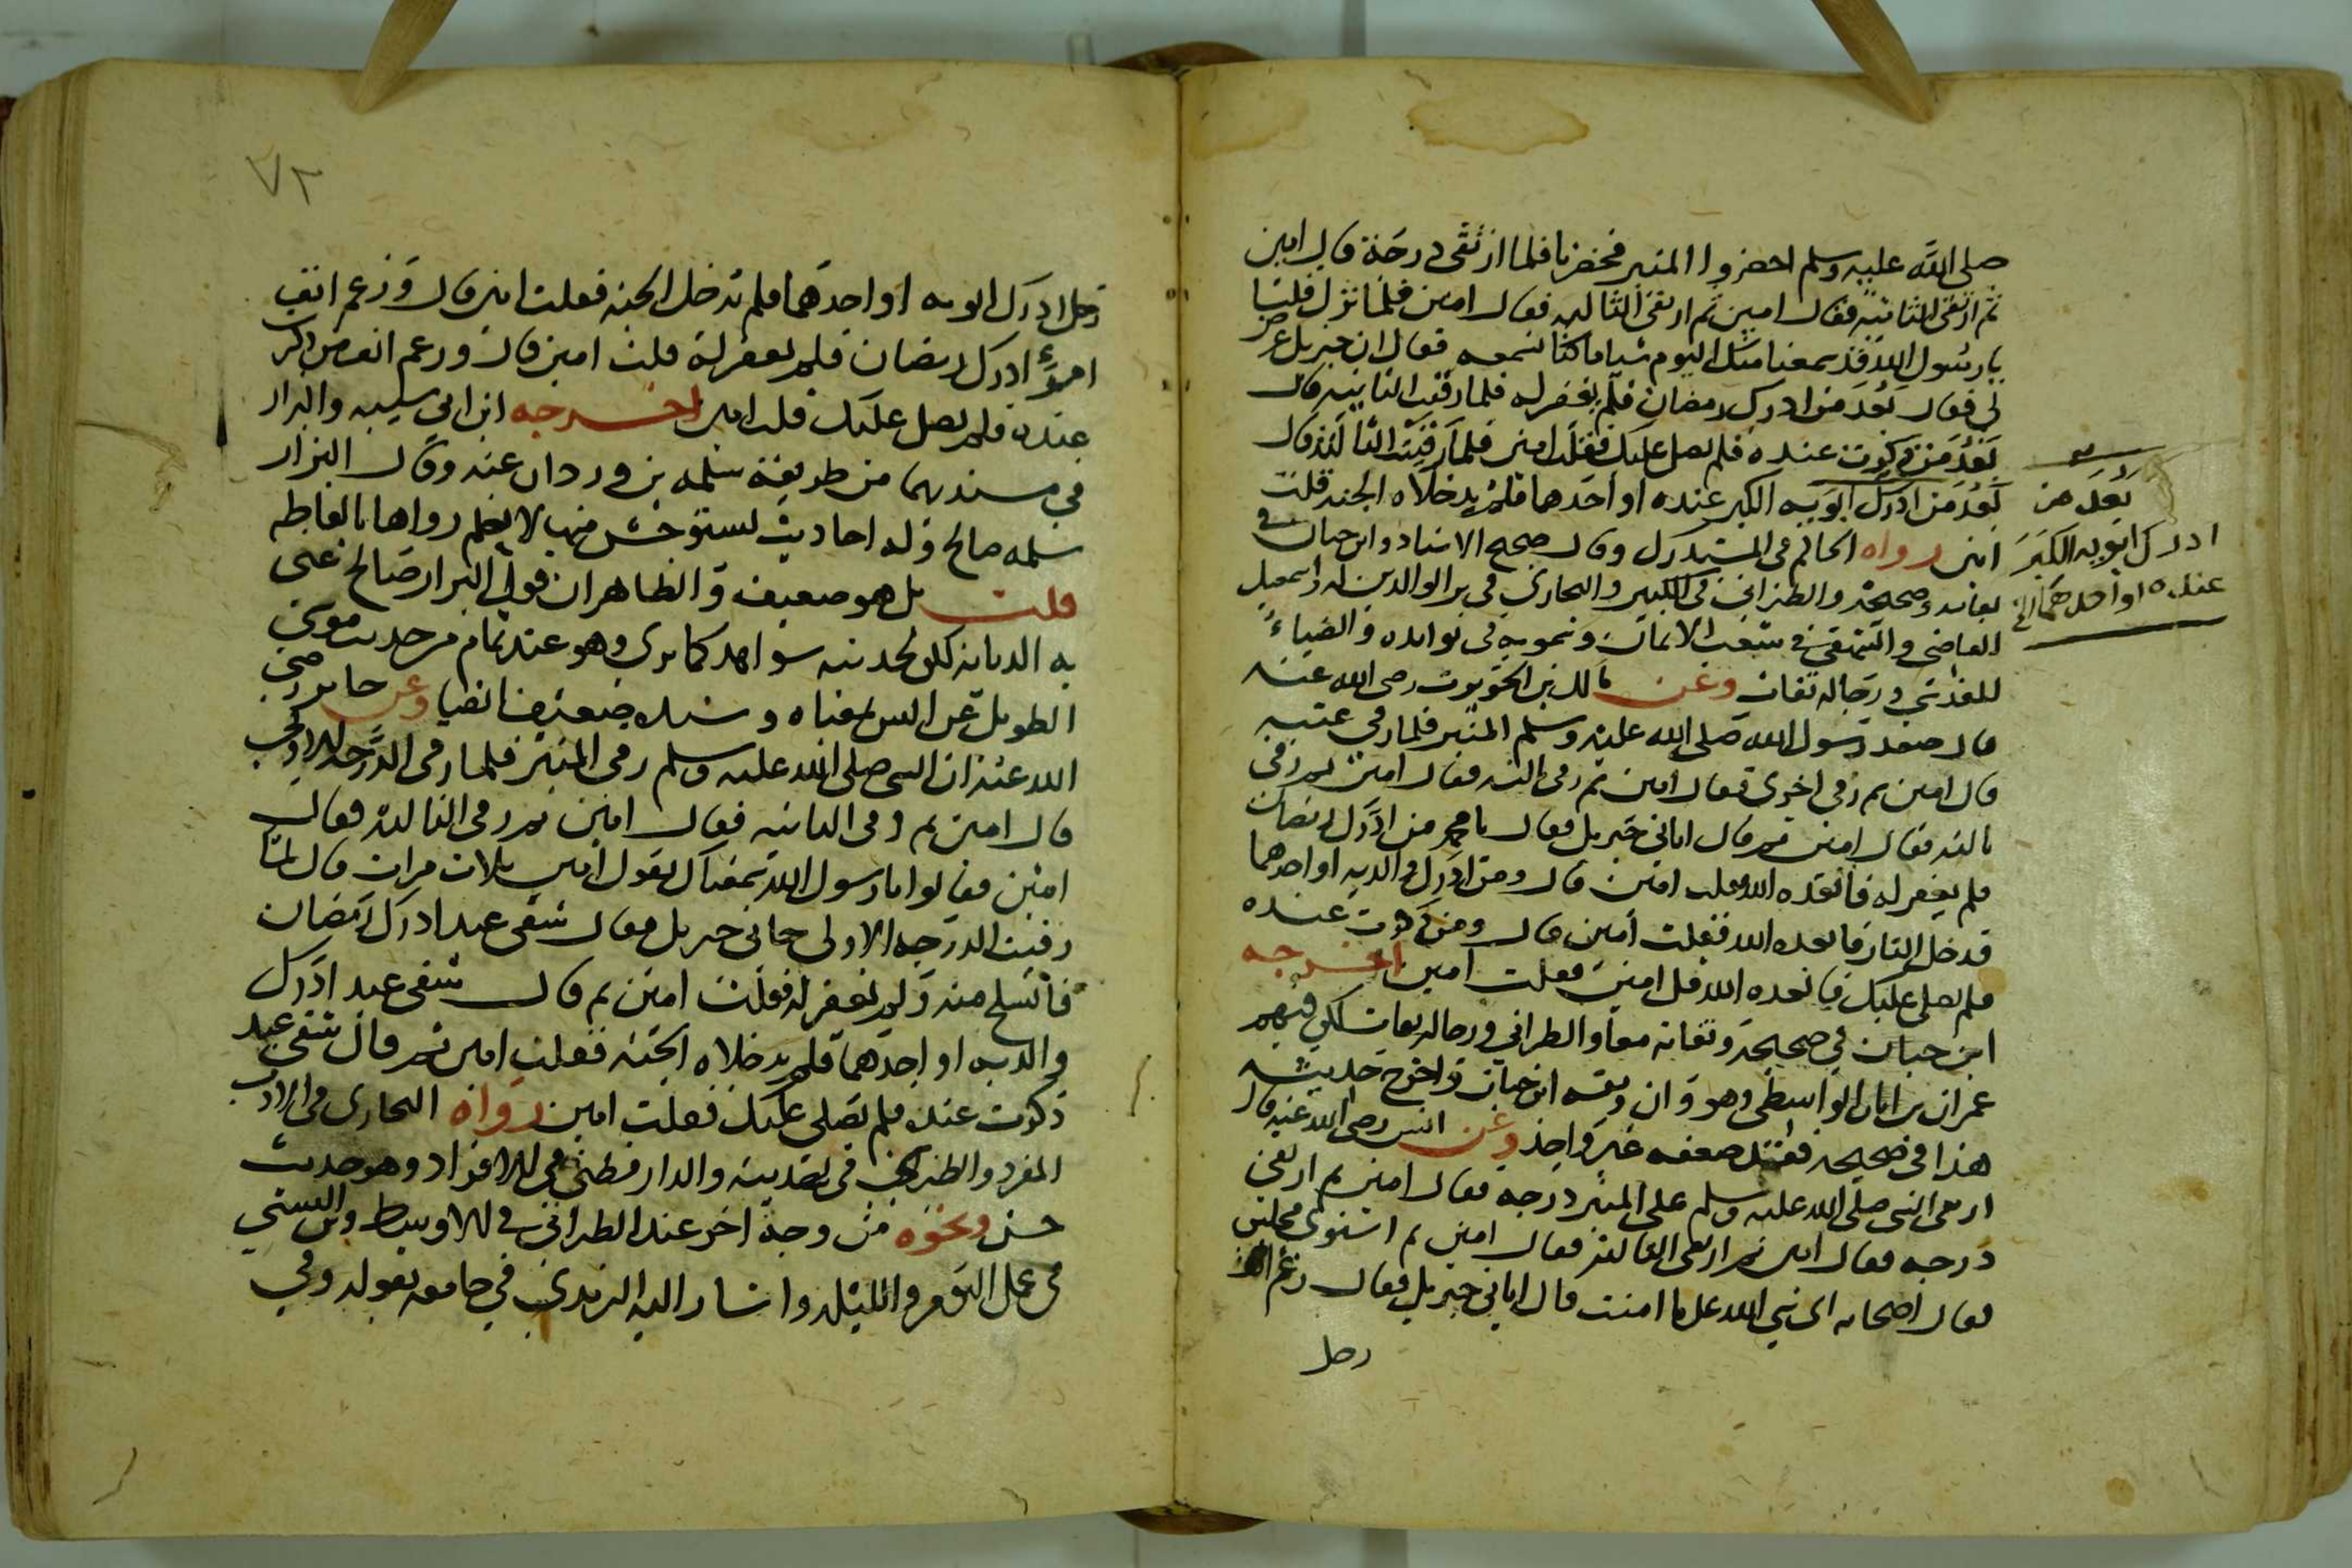 صلى الله عليه وسلم احضروا المنبر فحضرنا فلما ارتقى درجة قال امين
ثم ارتقى الثانية فقال امين ثم ارتقى الثالثة فقال امين فلما نزل قلنا
يا رسول الله قد سمعنا منك اليوم شيا ما كنا نسمعه فقال ان جبريل عرض
لي فقال بعد من ادرك رمضان فلم يغفر له فلما رقيت الثانية قال
بعد من ذكرت عنده فلم يصل عليك فقلت امين فلما رقيت الثالثة قال
بعد من ادرك ابويه الكبر عنده او احدهما فلم يدخلاه الجنة قلت
امين رواه الحاكم في المستدرك وقال صحيح الاسناد وابن حبان في
ثقاته وصحيحه والطبراني في الكبير والبخاري في بر الوالدين له واسمعيل
القاضي والبيهقي في شعب الايمان وسمويه في فوايده والضياء
للمقدسي ورجاله ثقات وعن مالك بن الحويرث رضي الله عنه
قال صعد رسول الله صلى الله عليه وسلم المنبر فلما رقي عتبة
قال امين ثم رقي اخرى فقال امين ثم رقي ثالثة فقال امين ثم رقى
ثالثة فقال امين ثم قال اتاني جبريل فقال يا محمد من ادرك رمضان
فلم يغفر له فابعده الله فقلت امين قال ومن ادرك والديه او احدهما
فدخل النار فابعده الله فقلت امين قال ومن ذكرت عنده
فلم يصل عليك فابعده الله قل امين فقلت امين اخرجه
ابن حبان في صحيحه وثقاته معا والطبراني ورجاله ثقات لكن فيهم
عمران بن ابان الواسطي وهو وان وثقه ابن حبان واخرج حديثه
هذا في صحيحه فقد ضعفه غير واحد وعن انس رضي الله عنه قال
ارتقى النبي صلى الله عليه وسلم على المنبر درجة فقال امين ثم ارتقى
درجة فقال امين ثم ارتقى الثالثة فقال امين ثم استوى فجلس
فقال اصحابه اي نبي الله على ما امنت قال اتاني جبريل فقال رغم انف
رجل
بعد من
ادرك ابويه الكبر
عنده او احدهما الخ
٧٢
رجل ادرك ابويه او احدهما فلم يدخل الجنة فقلت امين قال ورغم انف
امرء ادرك رمضان فلم يغفر له قلت امين قال ورغم انف من ذكرت
عنده فلم يصل عليك قلت امين اخرجه ابن ابي شيبة والبزار
في مسنديهما من طريقة سلمة بن وردان عنه وقال البزار
سلمة صالح وله احاديث يستوحش منها لا نعلم رواها بالفاظه
قلت بل هو ضعيف والظاهر ان قول البزار صالح عنى
به الديانة لكن لحديثه شواهد كما ترى وهو عند تمام من حديث موسى
الطويل عن انس بمعناه وسنده ضعيف ايضا وعن جابر رضي
الله عنه ان النبي صلى الله عليه وسلم رقى المنبر فلما رقى الدرجة الاولى
قال امين ثم رقى الثانية فقال امين ثم رقى الثالثة فقال
امين فقالوا يا رسول الله سمعناك تقول امين ثلاث مرات قال لما
رقيت الدرجة الاولى جاني جبريل فقال شقي عبد ادرك رمضان
فانسلخ منه ولم يغفر له فقلت امين ثم قال شقي عبد ادرك
والديه او احدهما فلم يدخلاه الجنة فقلت امين ثم قال شقي عبد
ذكرت عنده فلم يصلي عليك فقلت امين رواه البخاري في الادب
المفرد والطبري في تهذيبه والدارقطني في الافراد وهو حديث
حسن ونحوه من وجه اخر عند الطبراني في الاوسط وابن السني
في عمل اليوم والليلة واشار اليه الترمذي في جامعه بقوله وفي